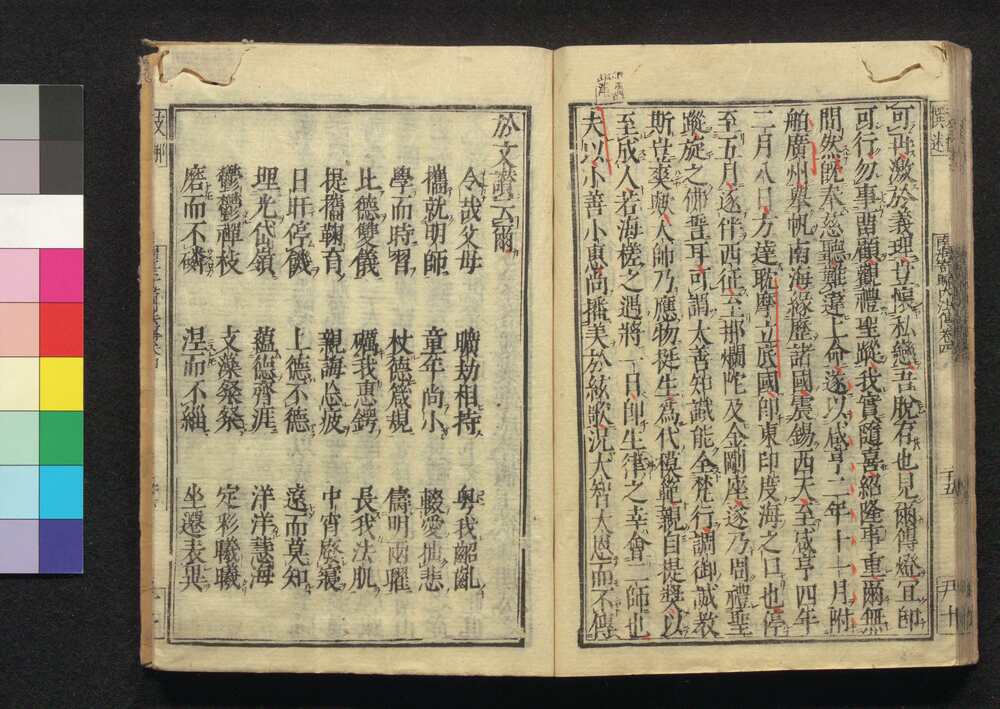 可再激於義理豈懼私戀吾脫有也見爾傳燈宜即
可行勿事留顧觀禮聖蹤我實隨喜紹隆事重爾無
間然既奉慈聽難違上命遂以咸亨二年十一月附
舶廣州舉帆南海緣歷諸國震錫西天至咸亨四年
二月八日方達耽摩立底國即東印度海之口也停
至五月遂伴西征至那爛陀及金剛座遂乃周禮聖
蹤旋之佛誓耳可謂大善知識能全梵行調御誠教
斯豈爽歟大師乃應物挺生為代模範親自提獎以
至成人若海槎之遇將一日即生津之幸會二師也
夫以小善小惠尚播美於絃歌況大智大恩而不傳
於文讚云爾
令哉父母 曠劫相持 粵我齠齔
攜就明師 童年尚小 輟愛抽悲
學而時習 杖德箴規 儔明兩曜
比德雙儀 礪我惠鍔 長我法肌
提攜鞠育 親誨忘疲 中宵廢寢
日旰停饑 上德不德 遠而莫知
埋光岱嶺 蘊德齊涯 洋洋慧海
鬱鬱禪枝 文藻粲粲 定彩曦曦
磨而不磷 涅而不緇 坐遷表異